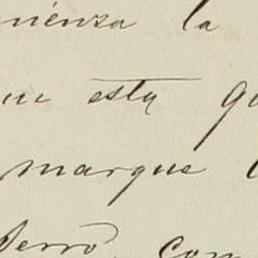 mienza la
esta
marque
Perro, com